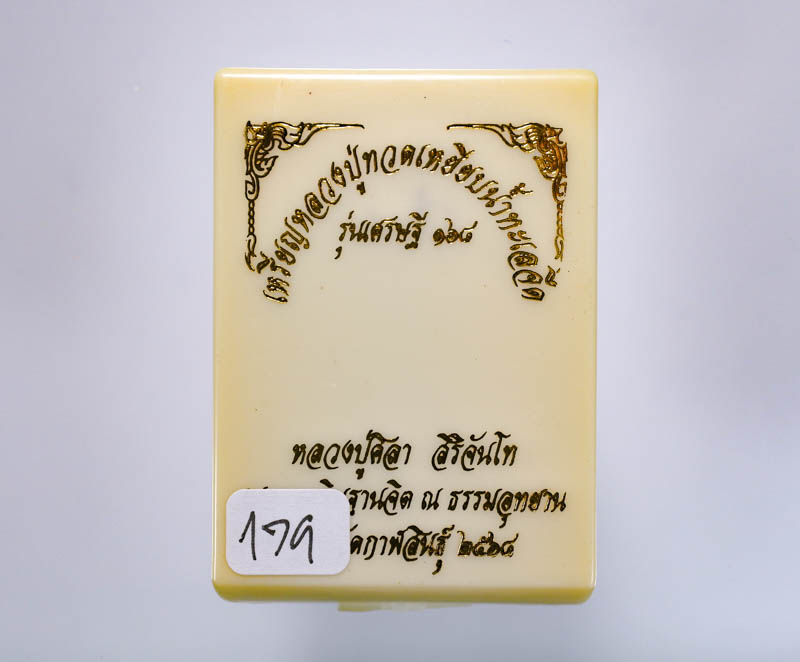 เหรียญหลวงปู่ทวดเหยียบน้ำทะเลจืด
รุ่นเศรษฐี ๑๖๘
หลวงปู่ศิลา สิริจันโท
ณ ธรรมอุทยาน
๒๕๖๘
179